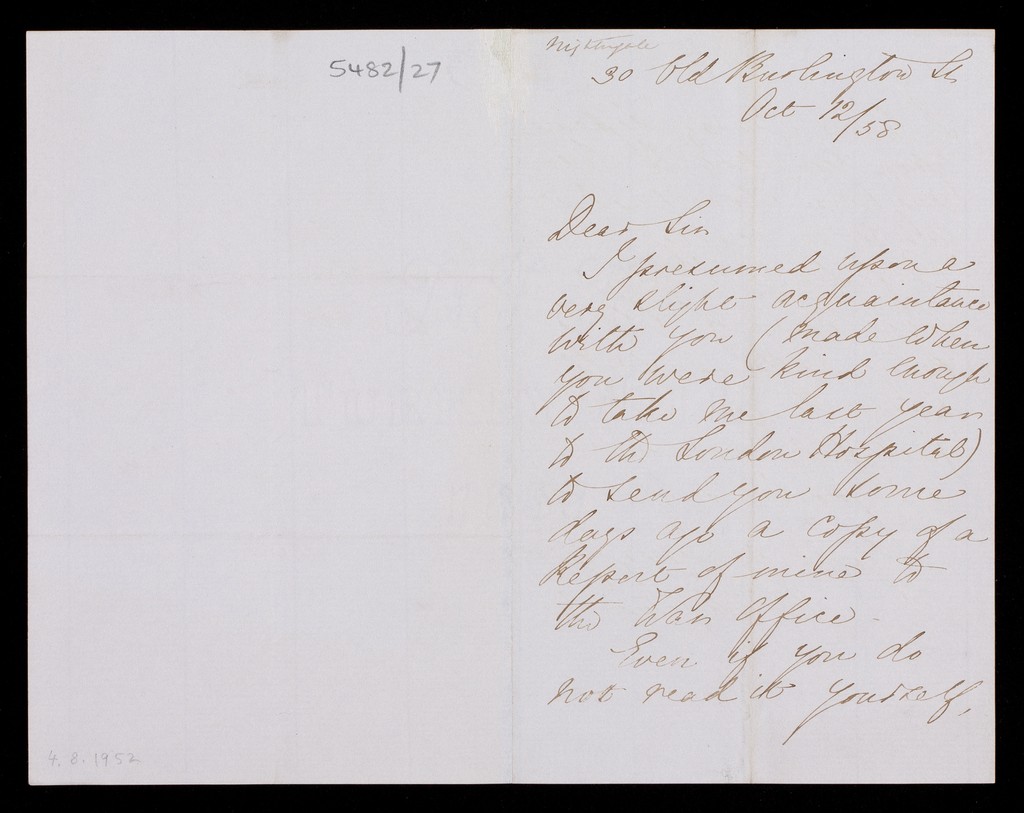 5482/27
4. 8. 1952
Nightingale
30 Old Burlington St
Oct 12/58
Dear Sir
I presumed upon a
very slight acquaintance
with you (made when
you were kind enough
to take me last year
to the London Hospital)
to send you some
days ago a copy of a
Report of mine to
the War Office.
Even if you do
not read it yourself,